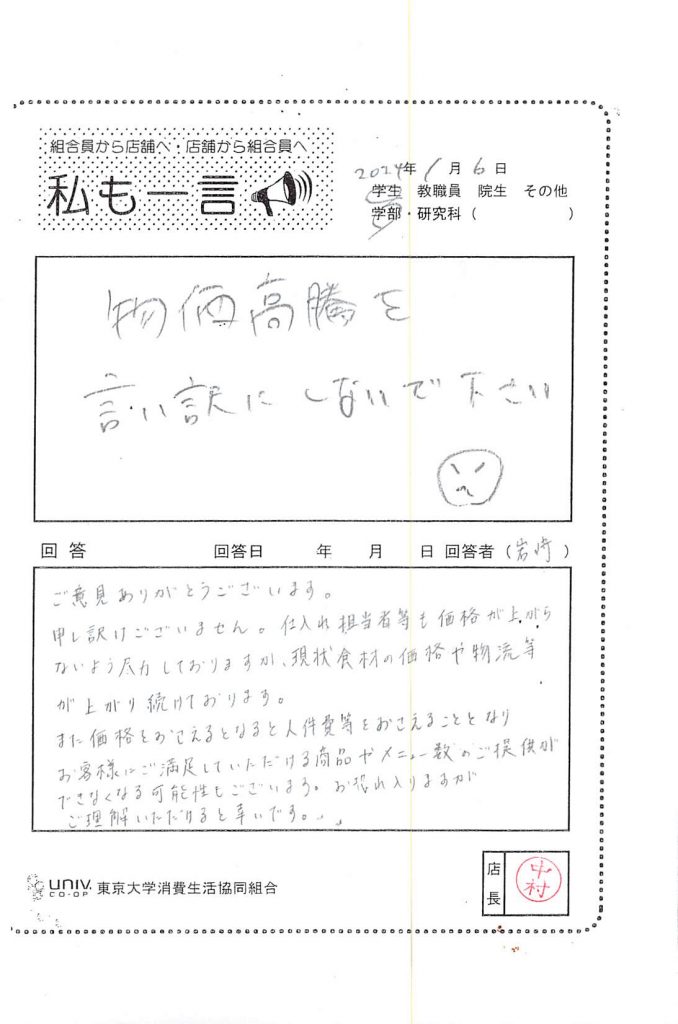 組合員から店舗へ・店舗から組合員へ
私も一言
2024年 1月 6日
学生 教職員 院生 その他
学部・研究科（ ）
物価高騰を
言い訳に しないで下さい
回答 回答日 年 月 日 回答者（岩崎）
ご意見ありがとうございます。
申し訳けございません。仕入れ担当者等も価格が上がら
ないよう尽力しておりますが、現状食材の価格や物流等
が上がり続けております。
また価格をおさえるとなると人件費等をおさえることとなり
お客様にご満足していただける商品やメニュー数のご提供が
できなくなる可能性もございます。お恐れ入りますが
ご理解いただけると幸いです。
UNIV. CO-OP 東京大学消費生活協同組合
店長
中村